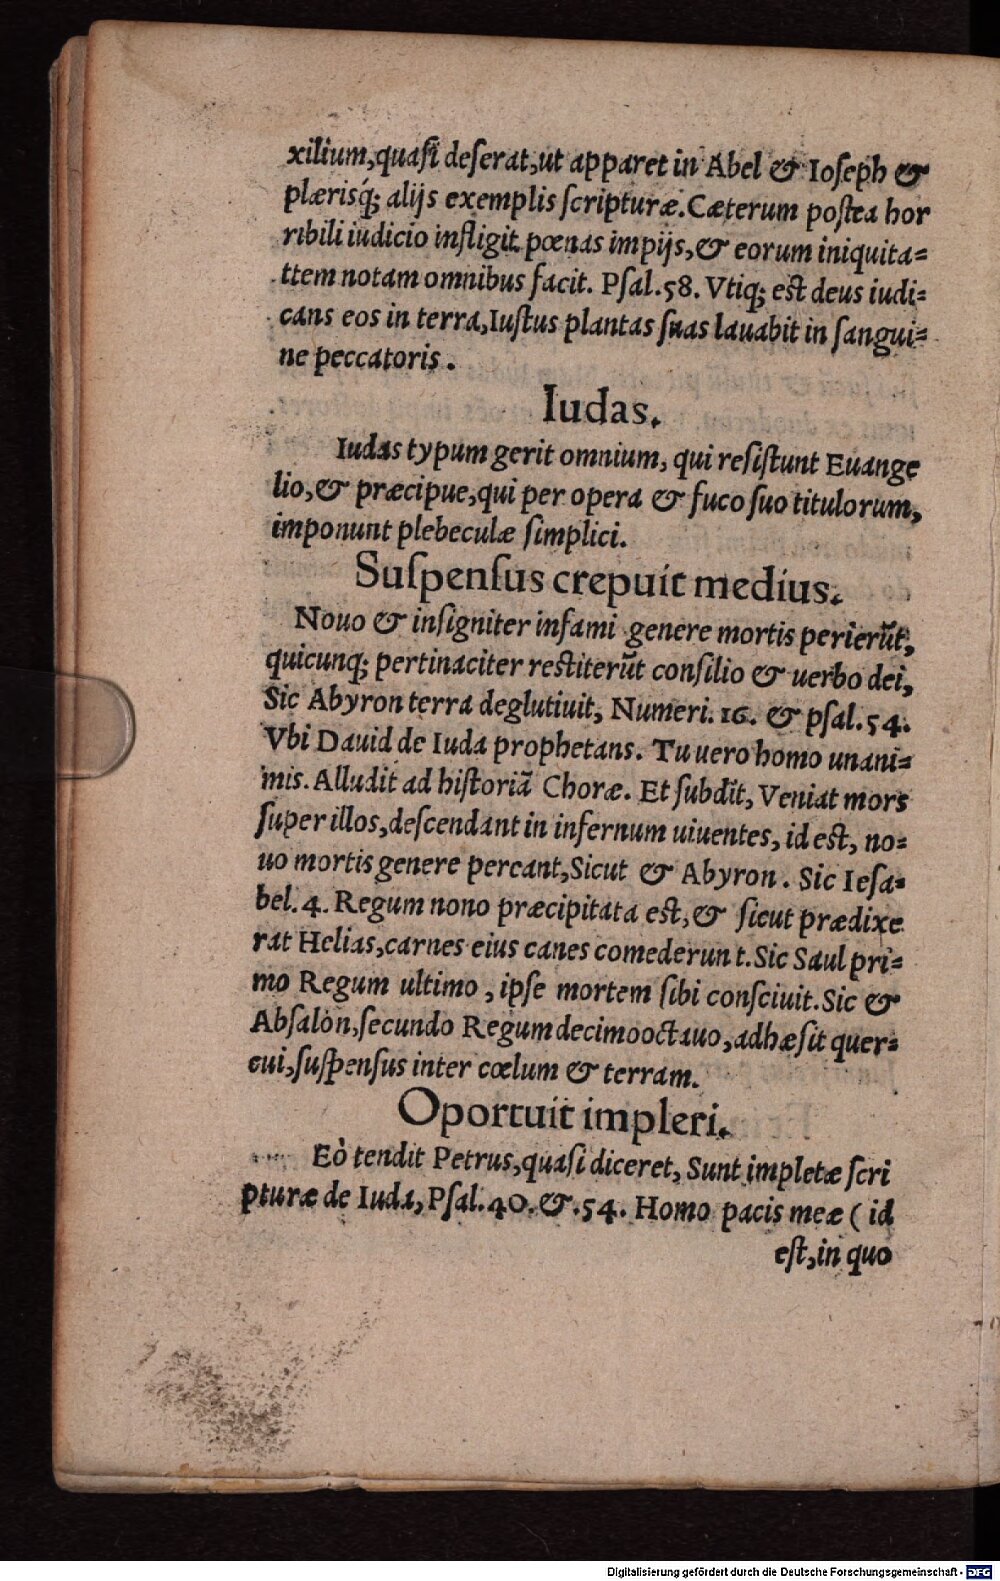 xilium,quasi deserat,ut apparet in Abel & Ioseph &
plærisq́; alijs exemplis scripturæ.Cæterum postea hor
ribili iudicio infligit pœnas impijs,& eorum iniquita=
ttem notam omnibus facit. Psal.58. Vtiq; est deus iudi=
cans eos in terra,Iustus plantas suas lauabit in sangui=
ne peccatoris.
Iudas.
Iudas typum gerit omnium, qui resistunt Euange
lio,& præcipue,qui per opera & fuco suo titulorum,
imponunt plebeculæ simplici.
Suspensus crepuit medius.
Nouo & insigniter infami genere mortis perierũt,
quicunq; pertinaciter restiterũt consilio & uerbo dei,
Sic Abyron terra deglutiuit, Numeri. 16. & psal.54.
Vbi Dauid de Iuda prophetans. Tu uero homo unani=
mis. Alludit ad historiã Choræ. Et subdit, Veniat mors
super illos,descendant in infernum uiuentes, id est, no=
uo mortis genere pereant,Sicut & Abyron. Sic Iesa=
bel. 4. Regum nono præcipitata est,& sicut prædixe
rat Helias,carnes eius canes comederun t.Sic Saul pri=
mo Regum ultimo, ipse mortem sibi consciuit.Sic &
Absalon,secundo Regum decimooctauo,adhæsit quer=
cui,suspensus inter cœlum & terram.
Oportuit impleri.
Eò tendit Petrus,quasi diceret, Sunt impletæ scri
pturæ de Iuda, Psal.40.&.54. Homo pacis meæ ( id
est,in quo
Digitalisierung gefördert durch die Deutsche Forschungsgemeinschaft - DFG